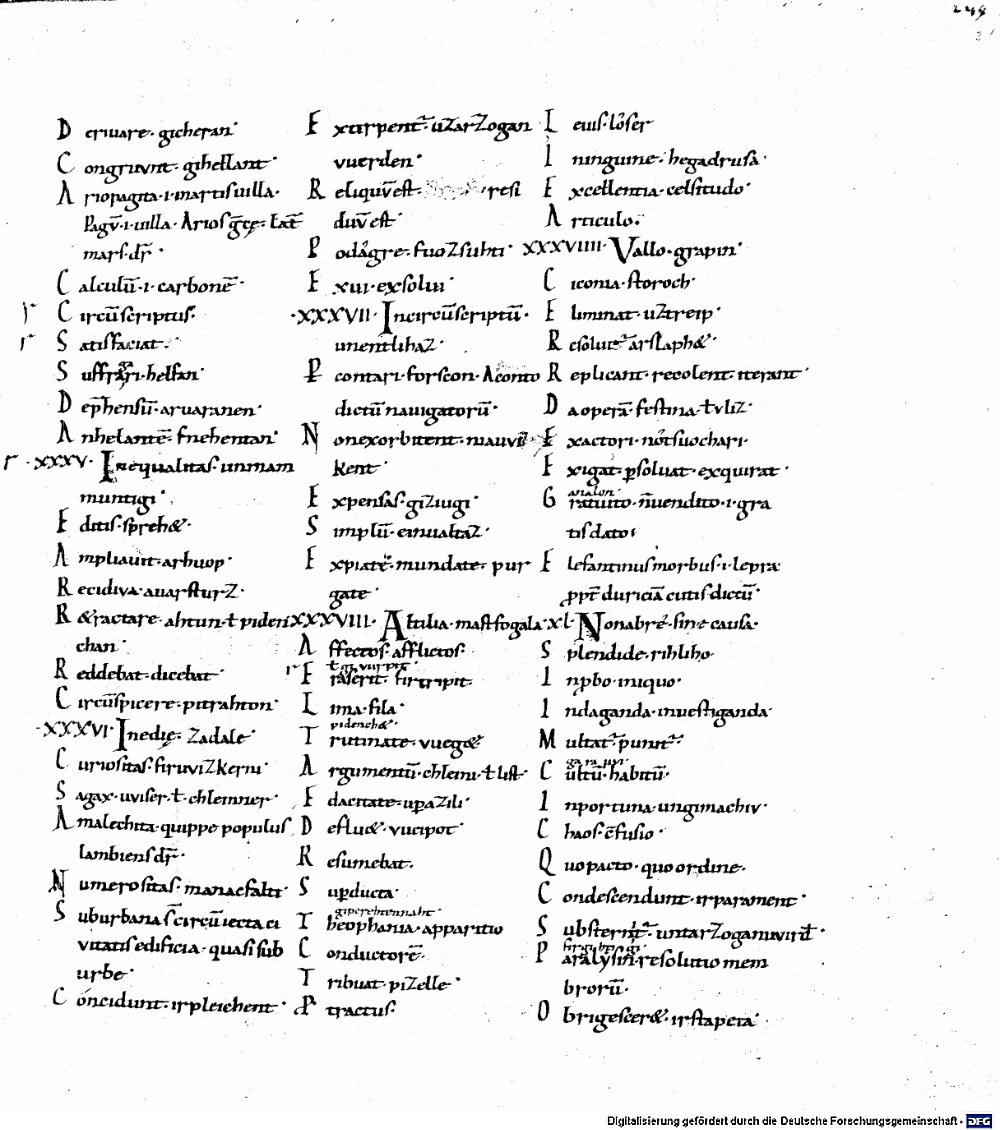 248
Deriuare· gicheran·
Congruunt· gihellant·
Ariopagita·i·martis uilla·
Pagus·i·uilla· Arios grece· Lat̄
mars·dr̄·
Calculū·i·carbonē·
r Circūscriptus·
r Satisfaciat·
Suffragari·helfan·
Dephensū·aruaranen·
Anhelantē·fnehentan·
r ·XXXV· Inequalitas·unmam
muntigi·
Editis·sprehet·
Ampliauit·arhuop·
Recidiua·auarsturz·
Retractare·ahtun·ł piden
chan·
Reddebat·dicebat·
Circūspicere·pitrahton·
·XXXVI· Inedię·zadale·
Curiositas·firuvizkerni·
Sagax·uviser·ł·chleinner·
Amalechita·quippe populus
lambiens dr̄·
Numerositas·manacfalti·
Suburbana s̄ circūiecta ci
vitatis edificia·quasi sub
urbe·
Concidunt·irpleichent·
Extirpent̄·uzarzogan
vuerden·
Reliquū est·resi
duū est·
Podagre·fuozsuhti·
Exui·exsolui·
·XXXVII· Incircūscriptū·
unentlihaz·
Pcontari·forscon·Aconto
dictū nauigatorū·
Nonexorbitent·niauviz
kent·
Expensas·giziugi·
Simplū·einualtaz·
Expiaret̄·mundate·pur
gate·
XXXVIII· Attilia·mastfogala·
Affectos·afflictos·
r Eraserit·firtripit·
Lima·fila·
pidenchet·
Trutinate·vueget·
Argumentū·chleini·ł list·
Edacitate·uparzili·
Defluet·vucipot·
Resumebat·
Supducta·
Theophania·apparitio
Conductorē·
Tribuat·pizelle·
Ptractus·
Leuis·löser
Ininguine·hegadrusa·
Excellentia·celsitudo·
Articulo·
XXXVIIII· Vallo·grapin·
Ciconia·storoch·
Eliminat·uztreip·
Resoluet̄·arslaphet·
Replicant·recolent·iterant·
Da operā·festina·ł vliz·
Exactori·notsuochari·
Exigat·psoluat·exquirat·
analon·
Gratuito·n̄uendito·i·gra
tis dato·
Elefantinus morbus·i·lepra
ppt̄ duriciā cutis dictū·
·xl· Nonabrē·sine causa·
Splendide·rihliho·
Inpbo·iniquo·
Indaganda·inuestiganda·
Multat̄·punit̄·
Cultū·habitū·
Inportuna·ungimachiv·
Chaos·c̄fusio·
Quo pacto·quo ordine·
Condescendunt·irparament·
Substernit̄·untarzoganuvirđ·
Paralysin·resolutio mem
brorū·
Obrigesceret·irstapeta·
Digitalisierung gefördert durch die Deutsche Forschungsgemeinschaft - DFG